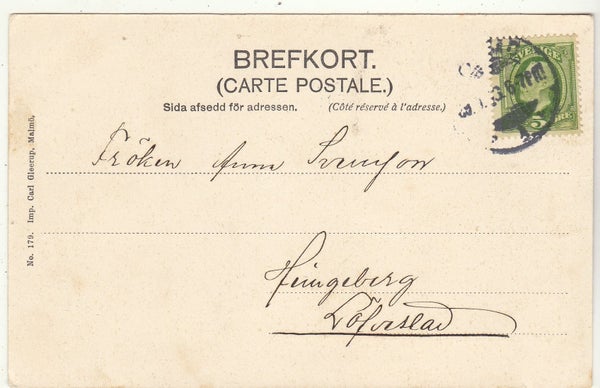 BREFKORT.
(CARTE POSTALE.)
Sida afsedd för adressen. (Côté réservé à l'adresse.)
SVERIGE
5
No. 179. Imp. Carl Gleerup, Malmö.
Fröken Anna Svenson
Heingeberg
Löfvestad